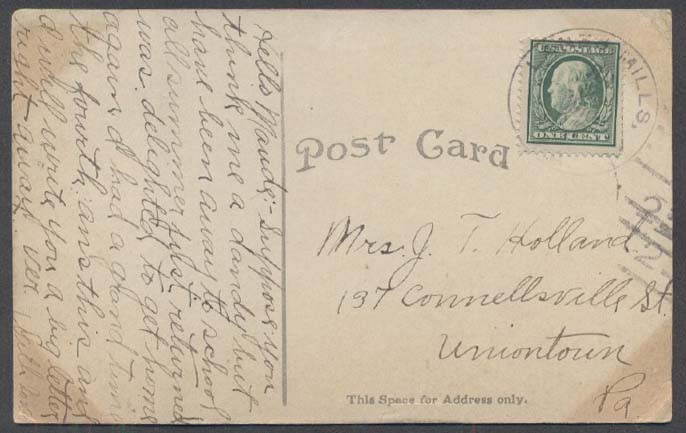 Hello Maude:- Suppose you
think me a dandy but
have been away to school
all summer just returned
was delighted to get home
again I had a grand time
the fourth ans this and
I will write you a big letter
right away
U.S. POSTAGE
ONE CENT
MILLS.
Post Card
Mrs. J. T. Holland
137 Connellsville St.
Uniontown
Pa.
This Space for Address only.